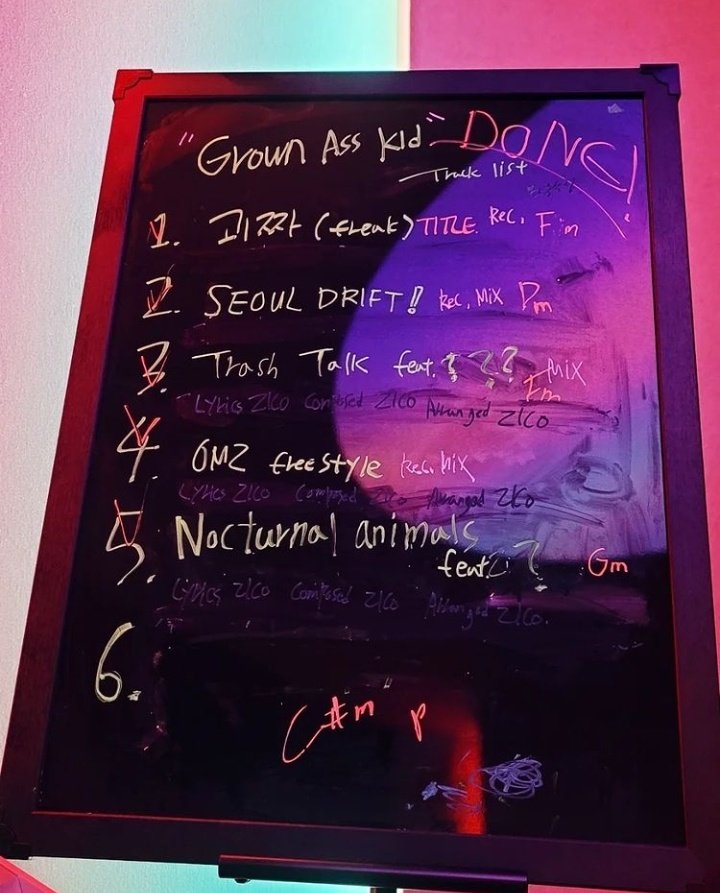 "Grown Ass Kid" DONE!
Track list
1. 괴짜 (freak) TITLE Rec, F#m
2. SEOUL DRIFT! Rec, Mix Dm
3. Trash Talk feat. ??? Mix
Fm
Lyrics ZICO Composed ZICO Arranged ZICO
4. OMZ freestyle Rec, Mix
Lyrics ZICO Composed ZICO Arranged ZICO
5. Nocturnal animals
feat. ?? Gm
Lyrics ZICO Composed ZICO Arranged ZICO.
6.
C#m P